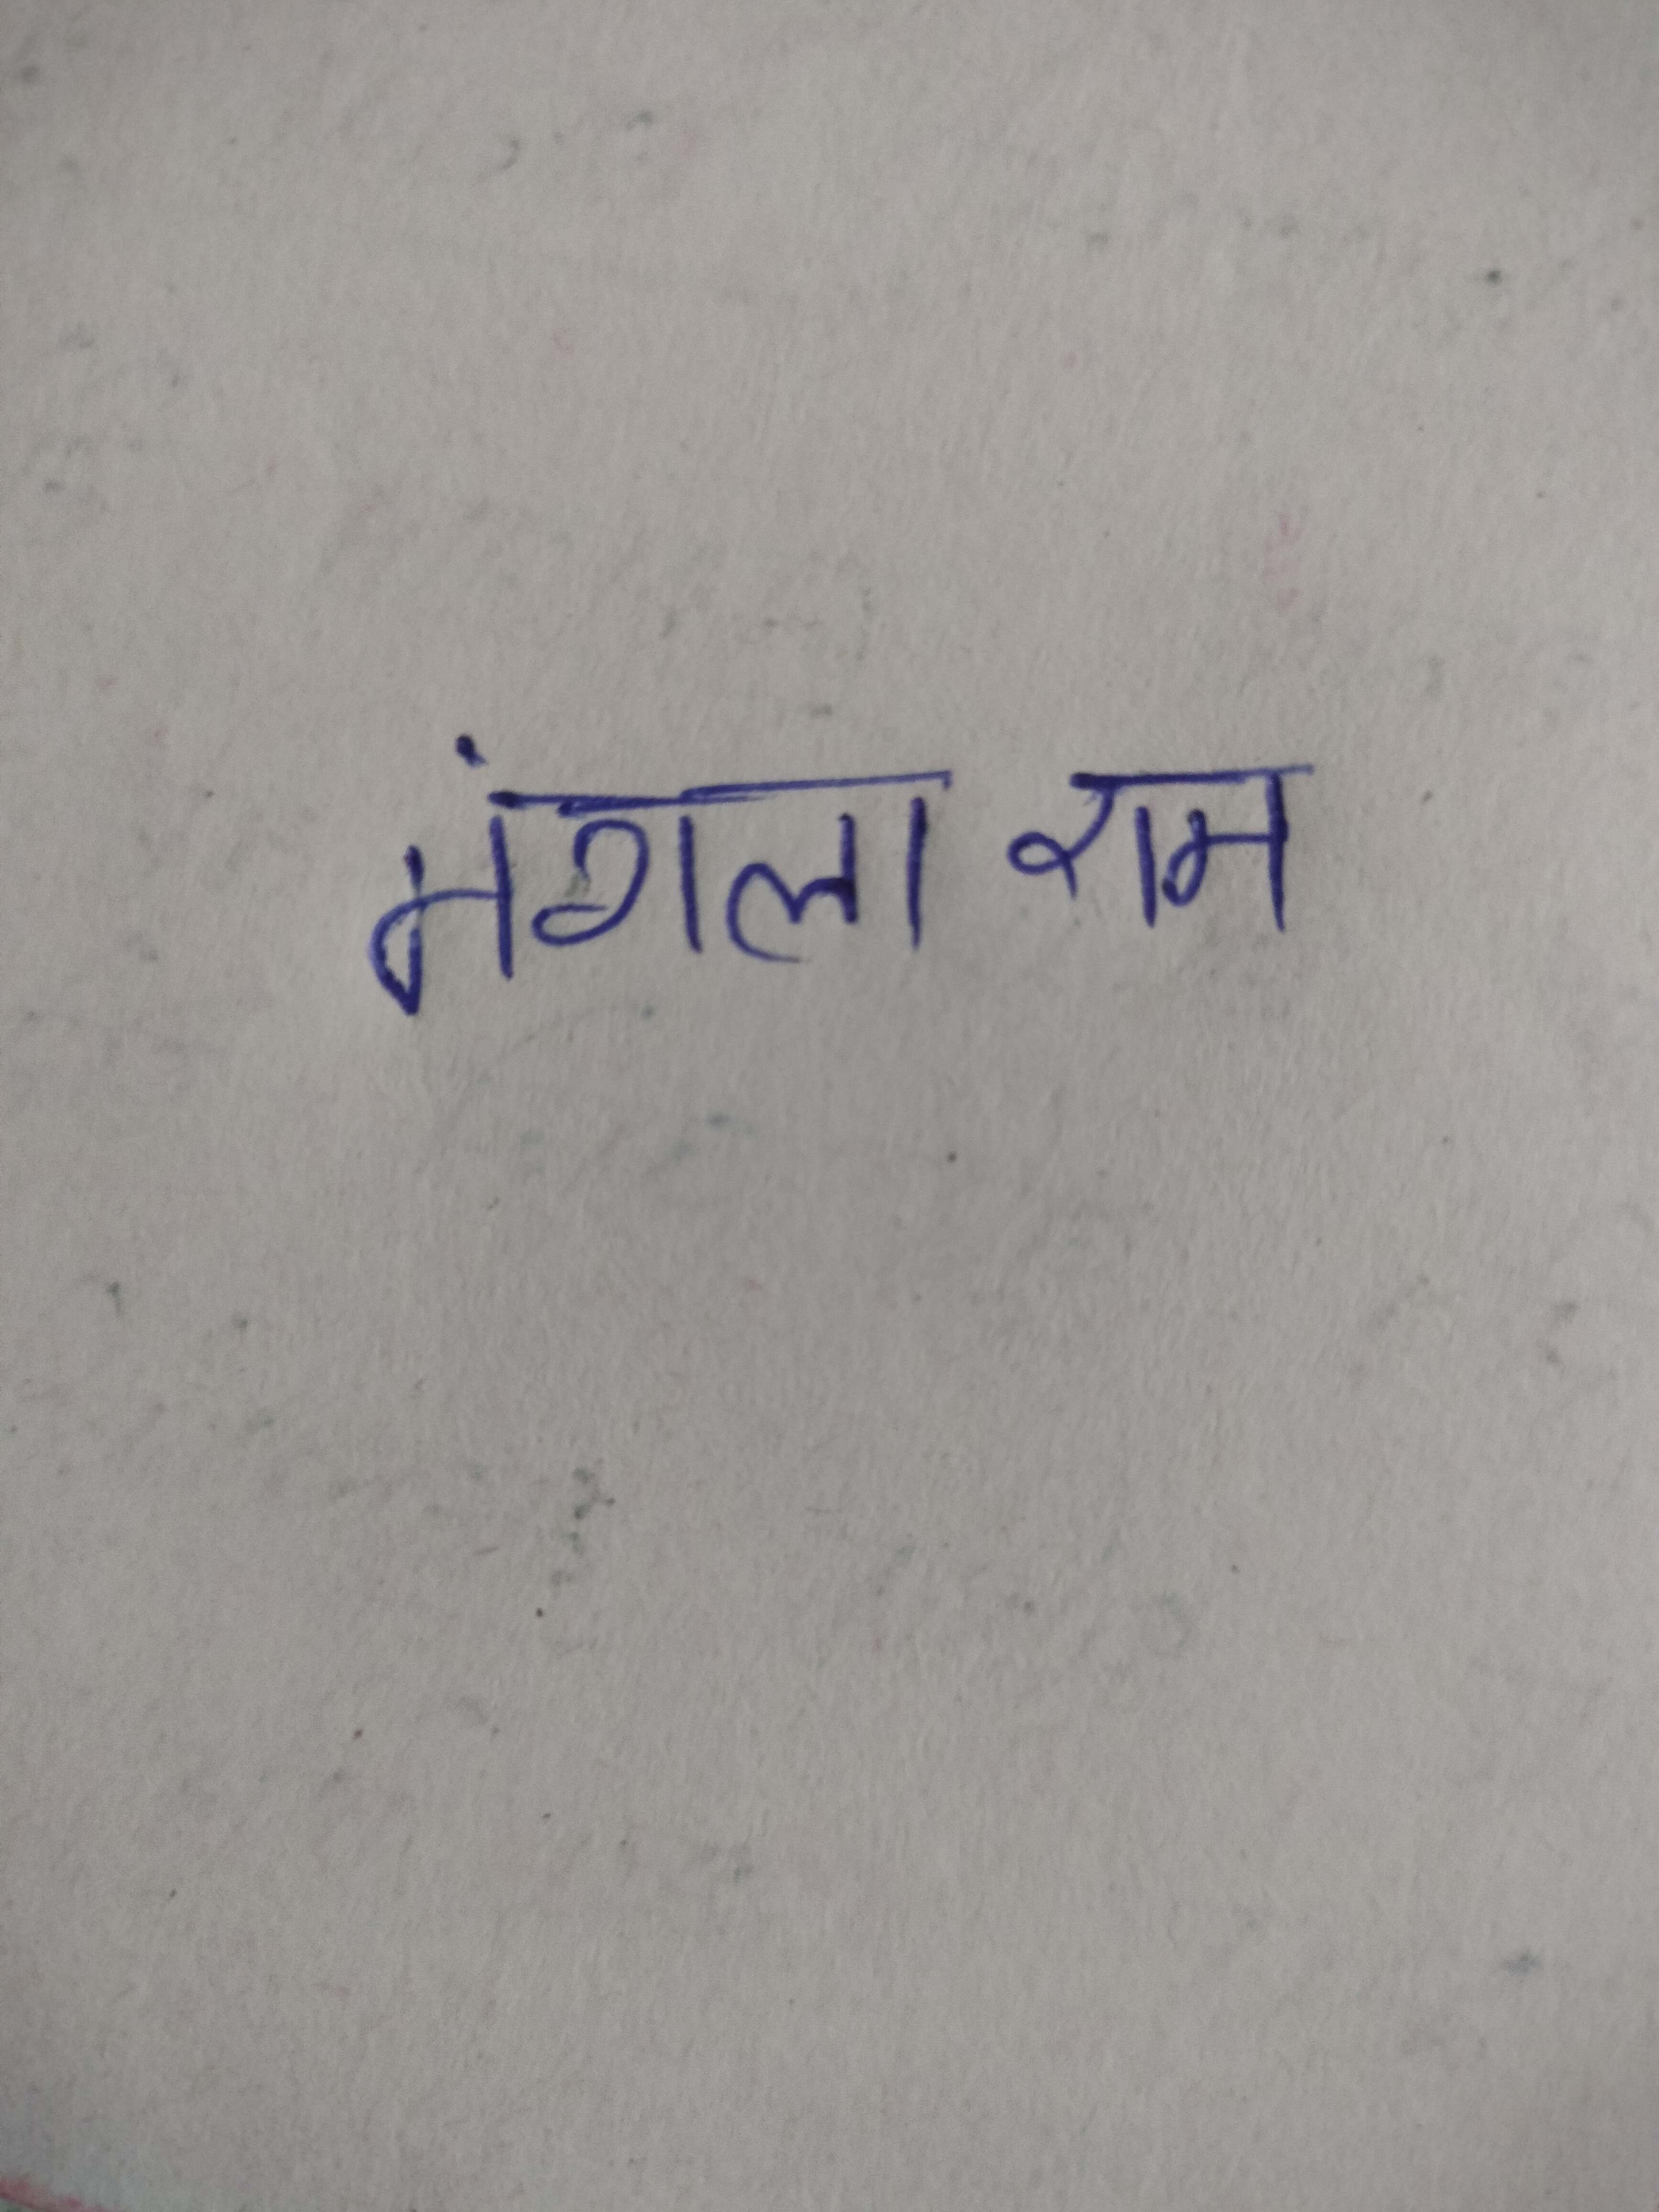 मंगला राम